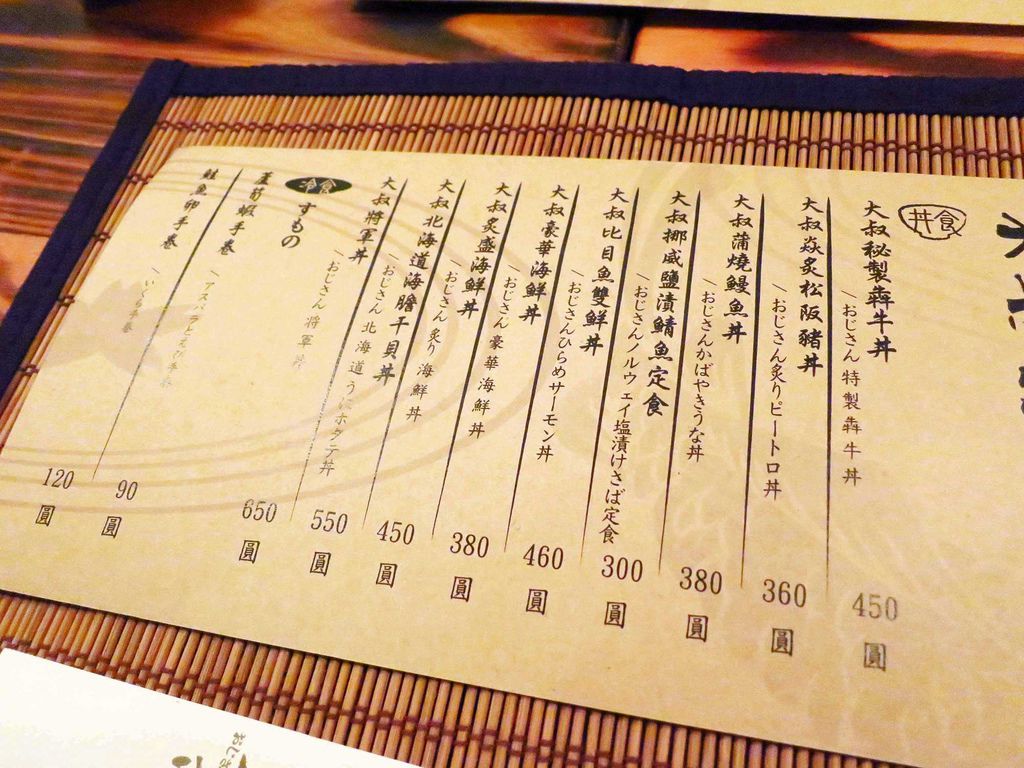 丼食
大叔秘製犇牛丼
~おじさん特製犇牛丼
450圓
大叔焱炙松阪豬丼
~おじさん炙りピートロ丼
360圓
大叔蒲燒鰻魚丼
~おじさんかばやきうな丼
380圓
大叔挪威鹽漬鯖魚定食
~おじさんノルウェイ塩漬けさば定食
300圓
大叔比目魚雙鮮丼
~おじさんひらめサーモン丼
460圓
大叔豪華海鮮丼
~おじさん豪華海鮮丼
380圓
大叔炙盛海鮮丼
~おじさん炙り海鮮丼
450圓
大叔北海道海膽干貝丼
~おじさん北海道うにホタテ丼
550圓
大叔將軍丼
~おじさん将軍丼
650圓
冷食 すもの
蘆筍蝦手卷
~アスパラとえび手巻
90圓
鮭魚卵手卷
~いくら手巻
120圓